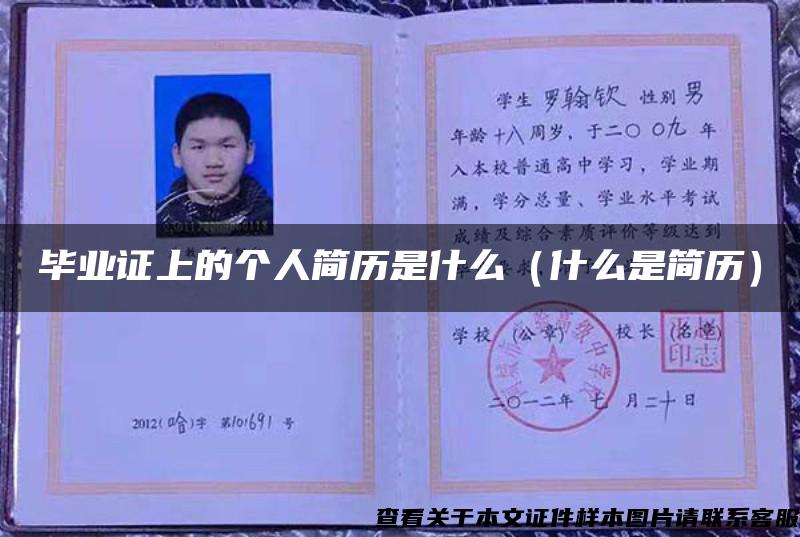 学生 罗翰钦 性别 男
年龄 十八 周岁，于二〇 〇九 年
入本校普通高中学习，学业期
满，学分总量、学业水平考试
成绩及综合素质评价等级达到
毕业证上的个人简历是什么（什么是简历）
学校 (公章) 校长 (名章)
二〇一二年 七 月二十日
2012(哈)字 第101691 号
查看关于本文证件样本图片请联系客服